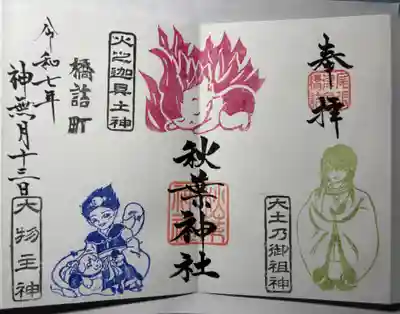 奉拝
火之迦具土神
秋葉神社
橋詰町
令和七年
神無月十三日
大物主神
大土乃御祖神